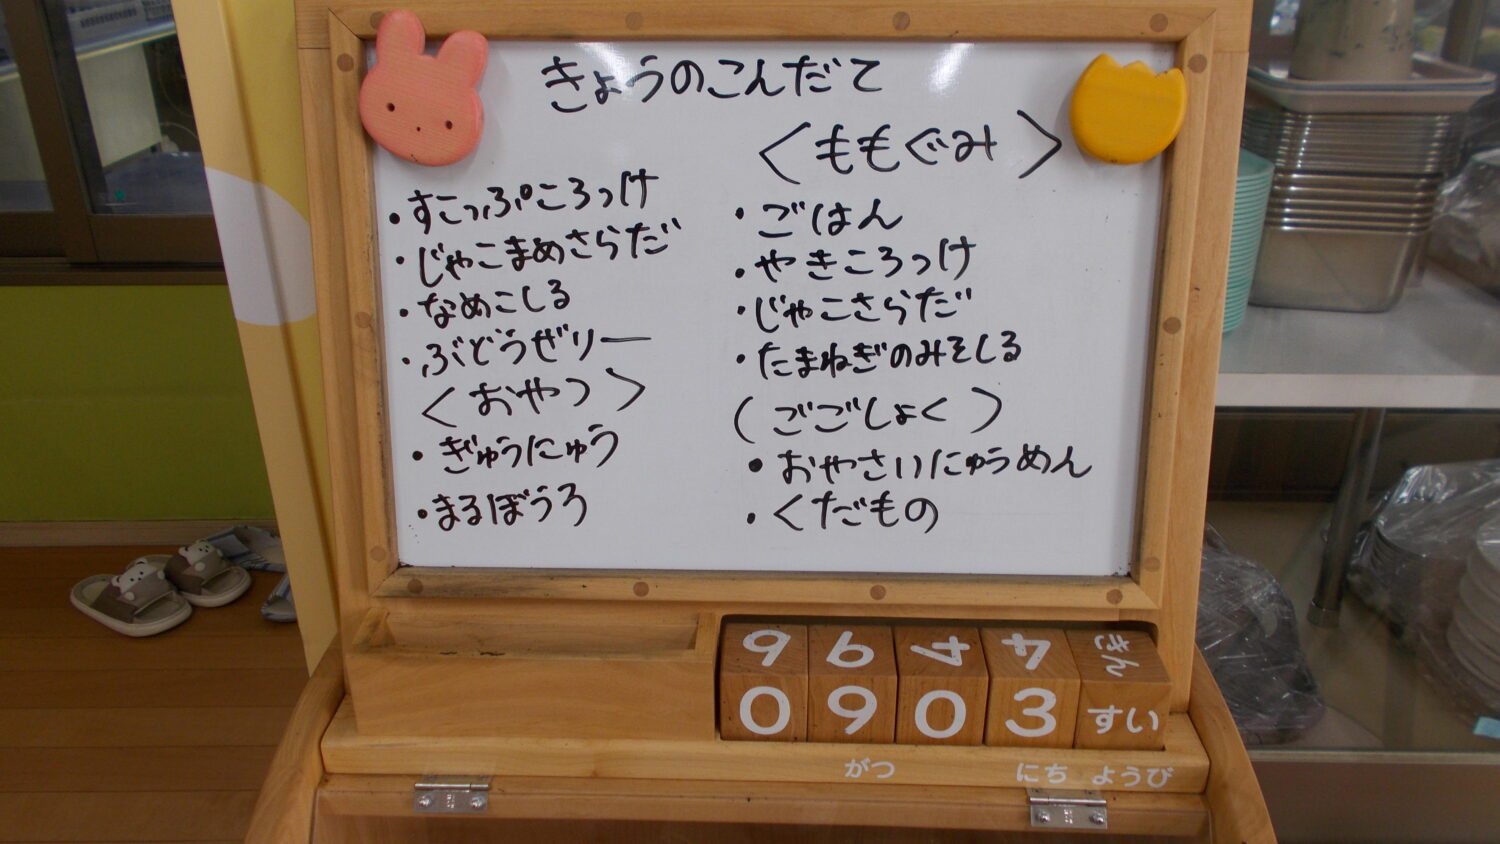 きょうのこんだて
・すこっぷころっけ
・じゃこまめさらだ
・なめこしる
・ぶどうぜりー
<おやつ>
・ぎゅうにゅう
・まるぼうろ
<ももぐみ>
・ごはん
・やきころっけ
・じゃこさらだ
・たまねぎのみそしる
(ごごしょく)
・おやさいにゅうめん
・くだもの
9 6 4 4 きん
0 9 0 3 すい
がつ にち ようび